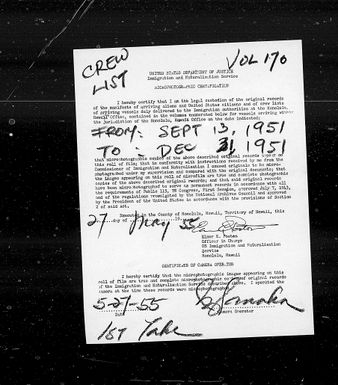 CREW
LIST
VOL 170
UNITED STATES DEPARTMENT OF JUSTICE
Immigration and Naturalization Service
MICROPHOTOGRAPHIC CERTIFICATION
I hereby certify that I am the legal custodian of the original records
of the manifests of arriving aliens and United States citizens and of crew lists
of arriving vessels duly delivered to the Immigration authorities at the Honolulu,
Hawaii Office, contained in the volumes enumerated below for vessels arriving
the jurisdiction of the Honolulu, Hawaii Office on the date indicated:
FROM: SEPT 13, 1951
TO: DEC 31, 1951
that microphotographic copies of the above described original records
this roll of film; that in conformity with instructions received by me from the
Commissioner of Immigration and Naturalization I caused
photographed under my supervision and compared with the original documents; that
the images appearing on this roll of microfilm are true
copies of the above described original records
have been microphotographed to serve as permanent records in accordance with all
the requirements of Public 115, 78 Congress, First Session, approved July 7, 1943,
and of the regulations promulgated by the
the President of the United States in accordance with the provisions of Section
of said act.
Executed in the County of Honolulu, Hawaii, Territory of Hawaii, this
27 day of May 55
Officer in Charge
US Immigration and Naturalization
Service
Honolulu, Hawaii
CERTIFICATE OF CAMERA OPERATOR
I hereby certify that the microphotographic images appearing on this
roll of film are true and complete microphotographic copies of original records
of the Immigration and Naturalization Service described above. I operated the
camera at the time these records were microphotographed.
5-27-55
Date
Camera Operator
1st Take